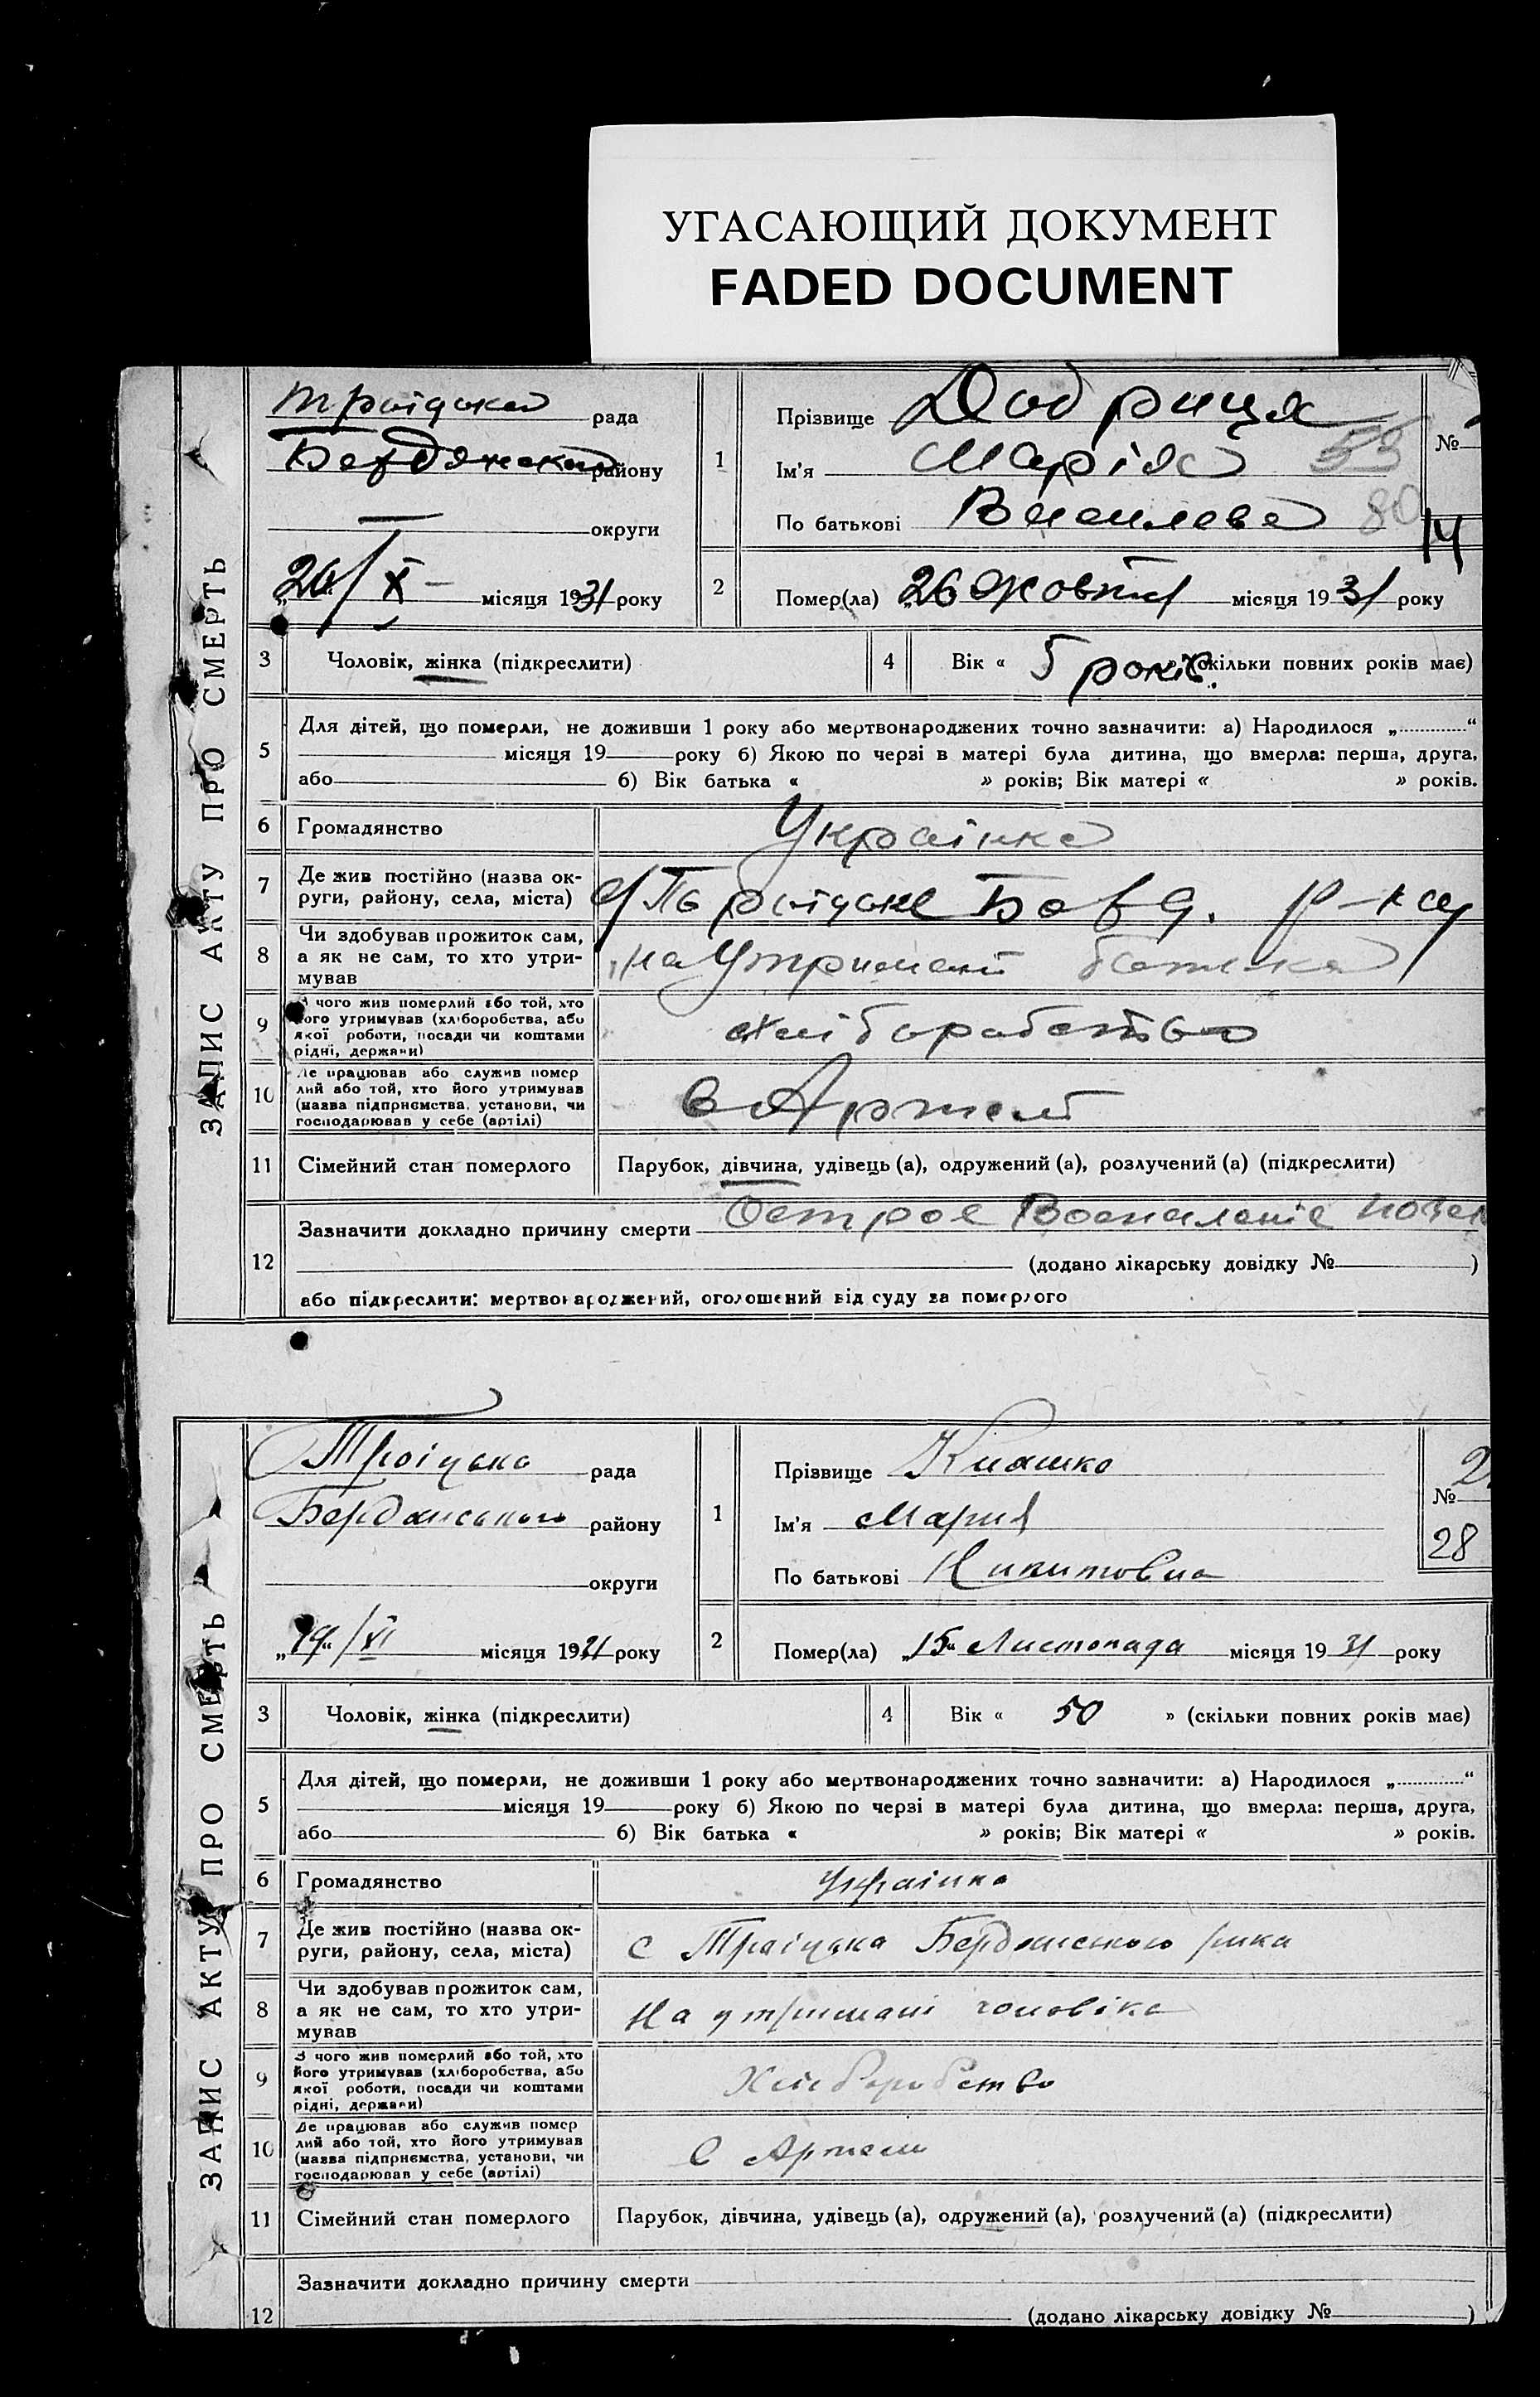 УГАСАЮЩИЙ ДОКУМЕНТ
FADED DOCUMENT
ЗАПИС АКТУ ПРО СМЕРТЬ
Троіцька рада
Бердянська району
округи
26/X - місяця 1931 року
1
Прізвище Добриця
Ім'я Марія 53
По батькові Василева 80
№
14
2
Помер(ла) „26 жовтня місяця 1931 року
3 Чоловік, жінка (підкреслити)
4 Вік « 5 років. (скільки повних років має)
5
Для дітей, що померли, не доживши 1 року або мертвонароджених точно зазначити: а) Народилося „ “
місяця 19 року б) Якою по черзі в матері була дитина, що вмерла: перша, друга,
або б) Вік батька « » років; Вік матері « » років.
6 Громадянство Українка
7 Де жив постійно (назва ок-
руги, району, села, міста) с/Троіцьке Берд. р-ну
8 Чи здобував прожиток сам,
а як не сам, то хто утри-
мував
на Утримані батька
9 З чого жив померлий або той, хто
його утримував (хліборобства, або
якої роботи, посади чи коштами
рідні, держави)
хліборобство
10 Де працював або служив помер
лий або той, хто його утримував
(назва підприємства, установи, чи
господарював у себе (артілі)
в Артелі
11 Сімейний стан померлого Парубок, дівчина, удівець (а), одружений (а), розлучений (а) (підкреслити)
12
Зазначити докладно причину смерти Острое Воспаленіе
(додано лікарську довідку № )
або підкреслити: мертвонароджений, оголошений від суду за померлого
ЗАПИС АКТУ ПРО СМЕРТЬ
Троіцька рада
Бердянського району
округи
„19“/XI місяця 1931 року
1
Прізвище Кияшко
Ім'я Мария
По батькові Никитовна
№ 2
28
2
Помер(ла) „15“ Листопада місяця 1931 року
3 Чоловік, жінка (підкреслити)
4 Вік « 50 » (скільки повних років має)
5
Для дітей, що померли, не доживши 1 року або мертвонароджених точно зазначити: а) Народилося „ “
місяця 19 року б) Якою по черзі в матері була дитина, що вмерла: перша, друга,
або б) Вік батька « » років; Вік матері « » років.
6 Громадянство Українка
7 Де жив постійно (назва ок-
руги, району, села, міста) с Троіцька Бердянського
8 Чи здобував прожиток сам,
а як не сам, то хто утри-
мував
На утримані чоловіка
9 З чого жив померлий або той, хто
його утримував (хліборобства, або
якої роботи, посади чи коштами
рідні, держави)
Хліборобство
10 Де працював або служив помер
лий або той, хто його утримував
(назва підприємства, установи, чи
господарював у себе (артілі)
в Артели
11 Сімейний стан померлого Парубок, дівчина, удівець (а), одружений (а), розлучений (а) (підкреслити)
12
Зазначити докладно причину смерти
(додано лікарську довідку № )